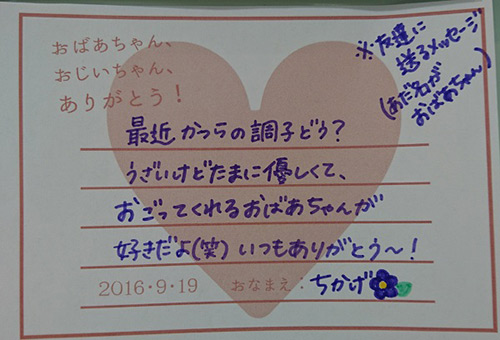 おばあちゃん、
おじいちゃん、
ありがとう!
※友達に
送るメッセージ
(あだ名が
おばあちゃん)
最近かつらの調子どう?
うざいけどたまに優しくて、
おごってくれるおばあちゃんが
好きだよ(笑)いつもありがとう～!
2016・9・19 おなまえ:ちかげ